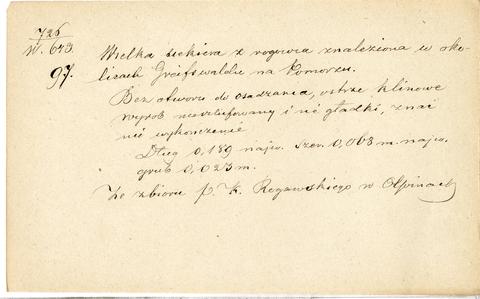 726
W. 673.
97.
Wielka siekiera z rogowca znaleziona w oko-
licach Greifswaldu na Pomorzu.
Bez otworu do osadzania, ostrze klinowe
wyrób nieszlifowany i nie gładki, znać
nie wykończenie
Dług 0,189 najw. szer. 0,068 m. najw.
grub 0,023 m.
Ze zbioru p. K. Rogawskiego w Ołpinach